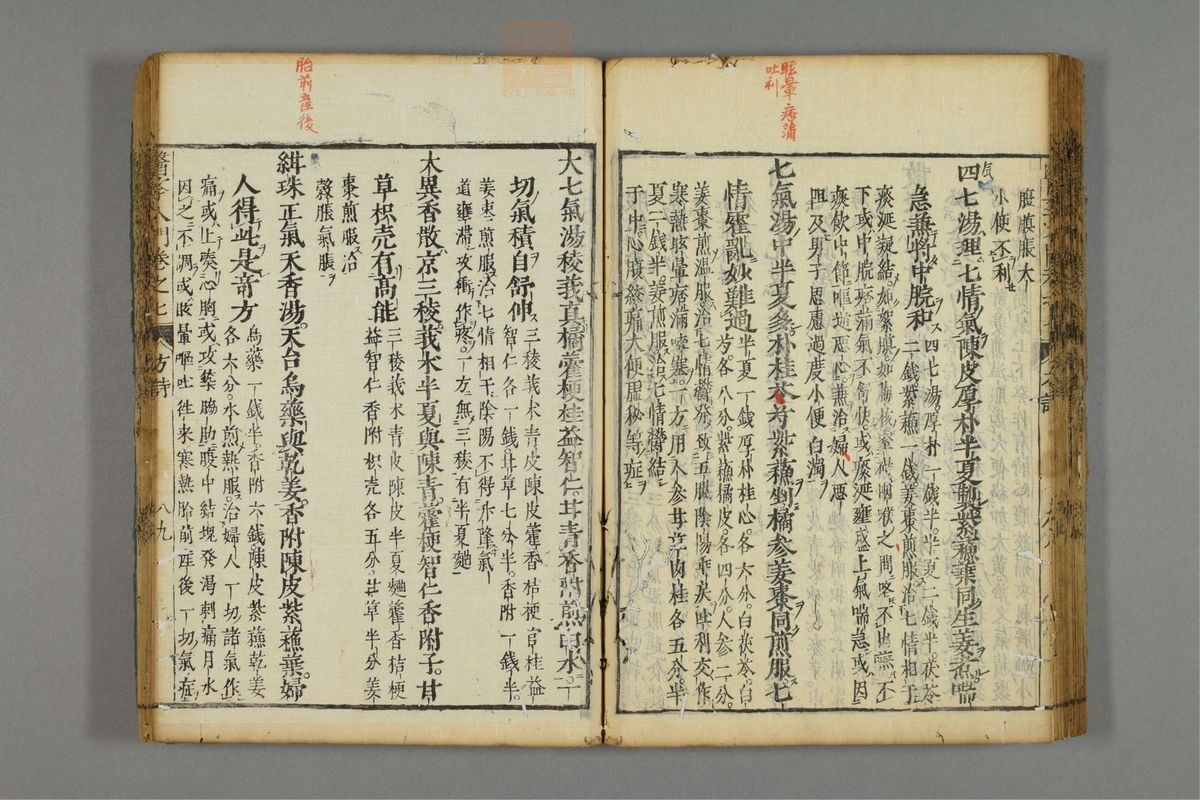 眩暈 痞滿
吐利
腹䐜脹大
小便不利
四七湯理七情氣陳皮厚朴半夏製紫蘓葉同生姜煮喘
急兼將中脘和
四七湯厚朴一錢半半夏二錢半茯苓
二錢紫蘓一錢姜棗煎服治七情相干
痰涎凝結如絮膜如梅核窒碍咽喉之間咯不出嚥不
下或中脘痞滿氣不舒快或痰涎壅盛上氣喘急或因
痰飲中節嘔逆惡心兼治婦人惡
阻及男子思慮過度小便白濁
七氣湯中半夏多朴桂苓芍紫蘓到橘參姜棗同煎服七
情霍亂妙難過
半夏一錢厚朴桂心各六分白茯苓白
芍各八分紫蘓橘皮各四分人參二分
姜棗煎溫服治七情欝發致五臟陰陽乖戾吐利交作
寒熱眩暈痞滿噎塞一方用人參甘草肉桂各五分半
夏二錢半姜煎服治七情欝結
于中心腹絞痛大便虛秘等症
胎前產後
大七氣湯稜莪真橘藿梗桂益智仁甘青香附煎須水一
切氣積自舒伸
三稜莪朮青皮陳皮藿香桔梗官桂益
智仁各一錢甘草七分半香附一錢半
姜棗煎服治七情相干陰陽不得升降氣
道壅滯攻衝作疼一方無三稜有半夏麯
木異香散京三稜莪朮半夏與陳青藿梗智仁香附子甘
草枳壳有高能
三稜莪朮青皮陳皮半夏麯藿香桔梗
益智仁香附枳壳各五分甘草半分姜
棗煎服治
穀脹氣脹
緝珠正氣天香湯天台烏藥與乾姜香附陳皮紫蘓葉婦
人得此是奇方
烏藥一錢半香附六錢陳皮紫蘓乾姜
各六分水煎熱服治婦人一切諸氣作
痛或上湊心胸或攻築脇肋腹中結塊發渴刺痛月水
因之不調或眩暈嘔吐徃来寒熱胎前產後一切氣症
醫學入門卷之七 方詩 八九